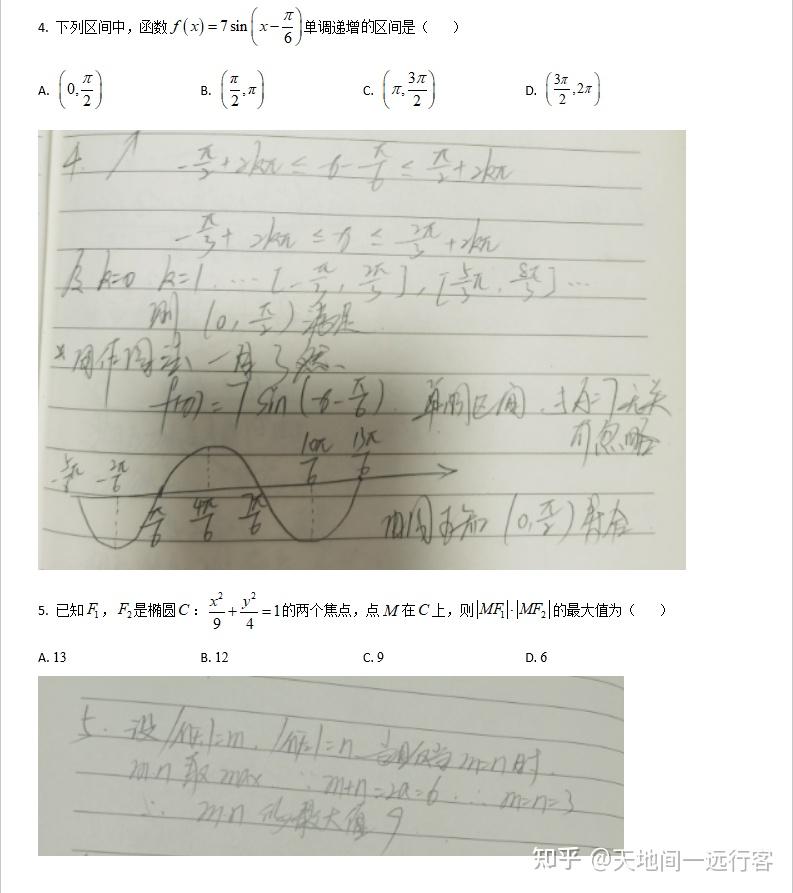 4. 下列区间中，函数 f(x)=7sin(x-π/6) 单调递增的区间是（ ）
A. (0,π/2) B. (π/2,π) C. (π,3π/2) D. (3π/2,2π)
4. ↗ -π/2+2kπ ≤ x-π/6 ≤ π/2+2kπ
-π/3+2kπ ≤ x ≤ 2π/3+2kπ
k=0 k=1 ... [-π/3, 2π/3], [5π/3, 8π/3] ...
则 (0, π/2) 满足
*用作图法 一目了然
f(x)=7sin(x-π/6) 单调区间 与A=7无关
可忽略
-5π/6 -2π/6 π/6 4π/6 7π/6 10π/6 13π/6
由图可知 (0, π/2) 符合
5. 已知F₁，F₂是椭圆C：x²/9+y²/4=1的两个焦点，点M在C上，则|MF₁|·|MF₂|的最大值为（ ）
A. 13 B. 12 C. 9 D. 6
5. 设|MF₁|=m，|MF₂|=n 当且仅当m=n时
mn取max ∵m+n=2a=6 ∴m=n=3
∴ mn 最大值 9
知乎 @天地间一远行客